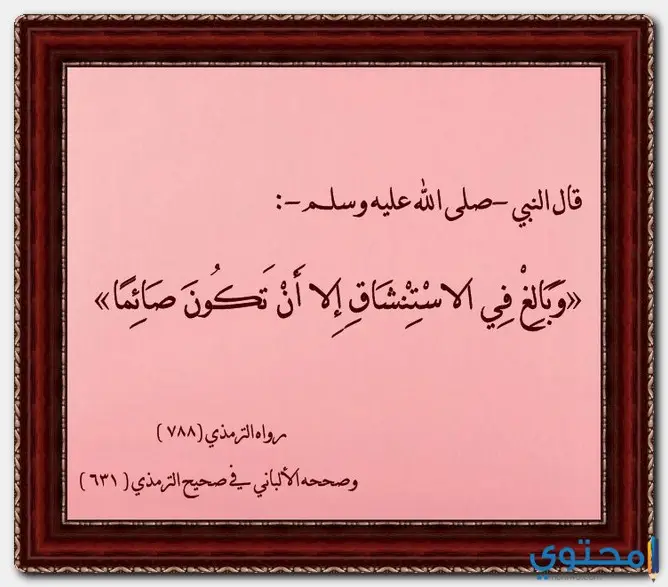 قال النبي -صلى الله عليه وسلم-:
«وَبَالِغْ فِي الاسْتِنْشَاقِ إِلا أَنْ تَكُونَ صَائِمًا»
رواه الترمذي (٧٨٨)
وصححه الألباني في صحيح الترمذي (٦٣١)
محتوي